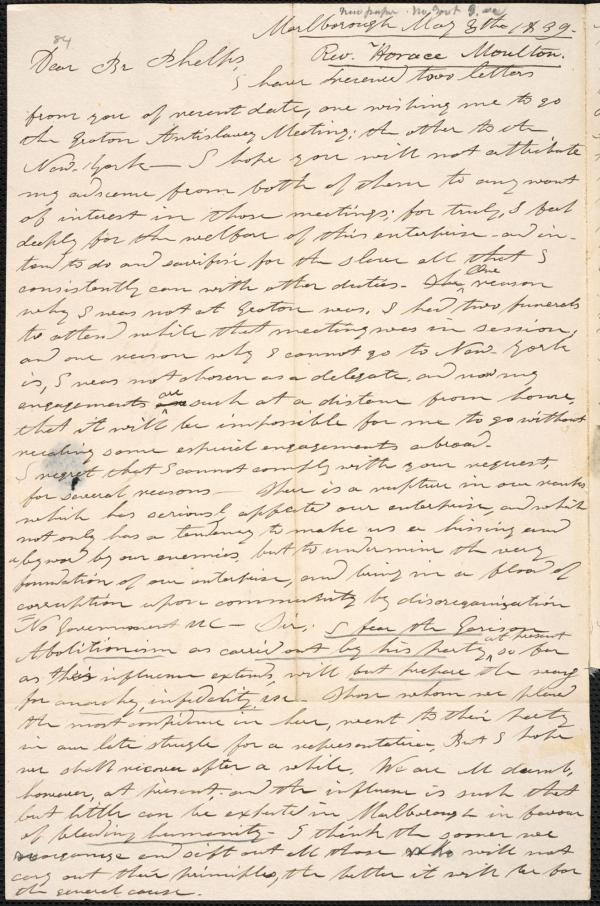 newspaper. No Govt
Marlborough May 3th 1839.
84
Rev. Horace Moulton.
Dear Br Phelps,
I have received two letters
from you of recent date, one wishing me to go
the Groton Antislavery Meeting; the other to the
New-York— I hope you will not attribute
my absence from both of them to any want
of interest in those meetings; for truly, I feel
deeply for the welfare of this enterprise and in-
tend to do and sacrifise for the slave all that I
consistently can with other duties. The One reason
why I was not at Groton was, I had two funerals
to attend while that meeting was in session,
and one reason why I cannot go to New-York
is, I was not chosen as a delegate, and now my
engagements are such at a distance from home,
that it will be impossible for me to go without
recaling some especial engagements abroad.
I regret that I cannot comply with your request,
for several reasons— There is a rupture in our ranks
which has seriously affected our enterprise, and which
not only has a tendency to make us a hissing and
a byword by our enemies, but to undermine the very
foundation of our enterprise, and bring in a flood of
corruption upon community by disorganization
No Government &C— Sir, I fear the Garison
Abolitionism as carried out by his party at present, so far
as their influence extends, will but prepare the way
for anarchy, infidelity &c. Those whom we placed
the most confidence in here, went to their party
in our late strugle for a representative, But I hope
we shall recover after a while. We are all dumb,
however, at present and the influence is such that
but little can be expected in Marlborough in favour
of bleeding humanity— I think the sooner we
reorganize and sift out all those who will not
cary out their principles, the better it will be for
the general cause.